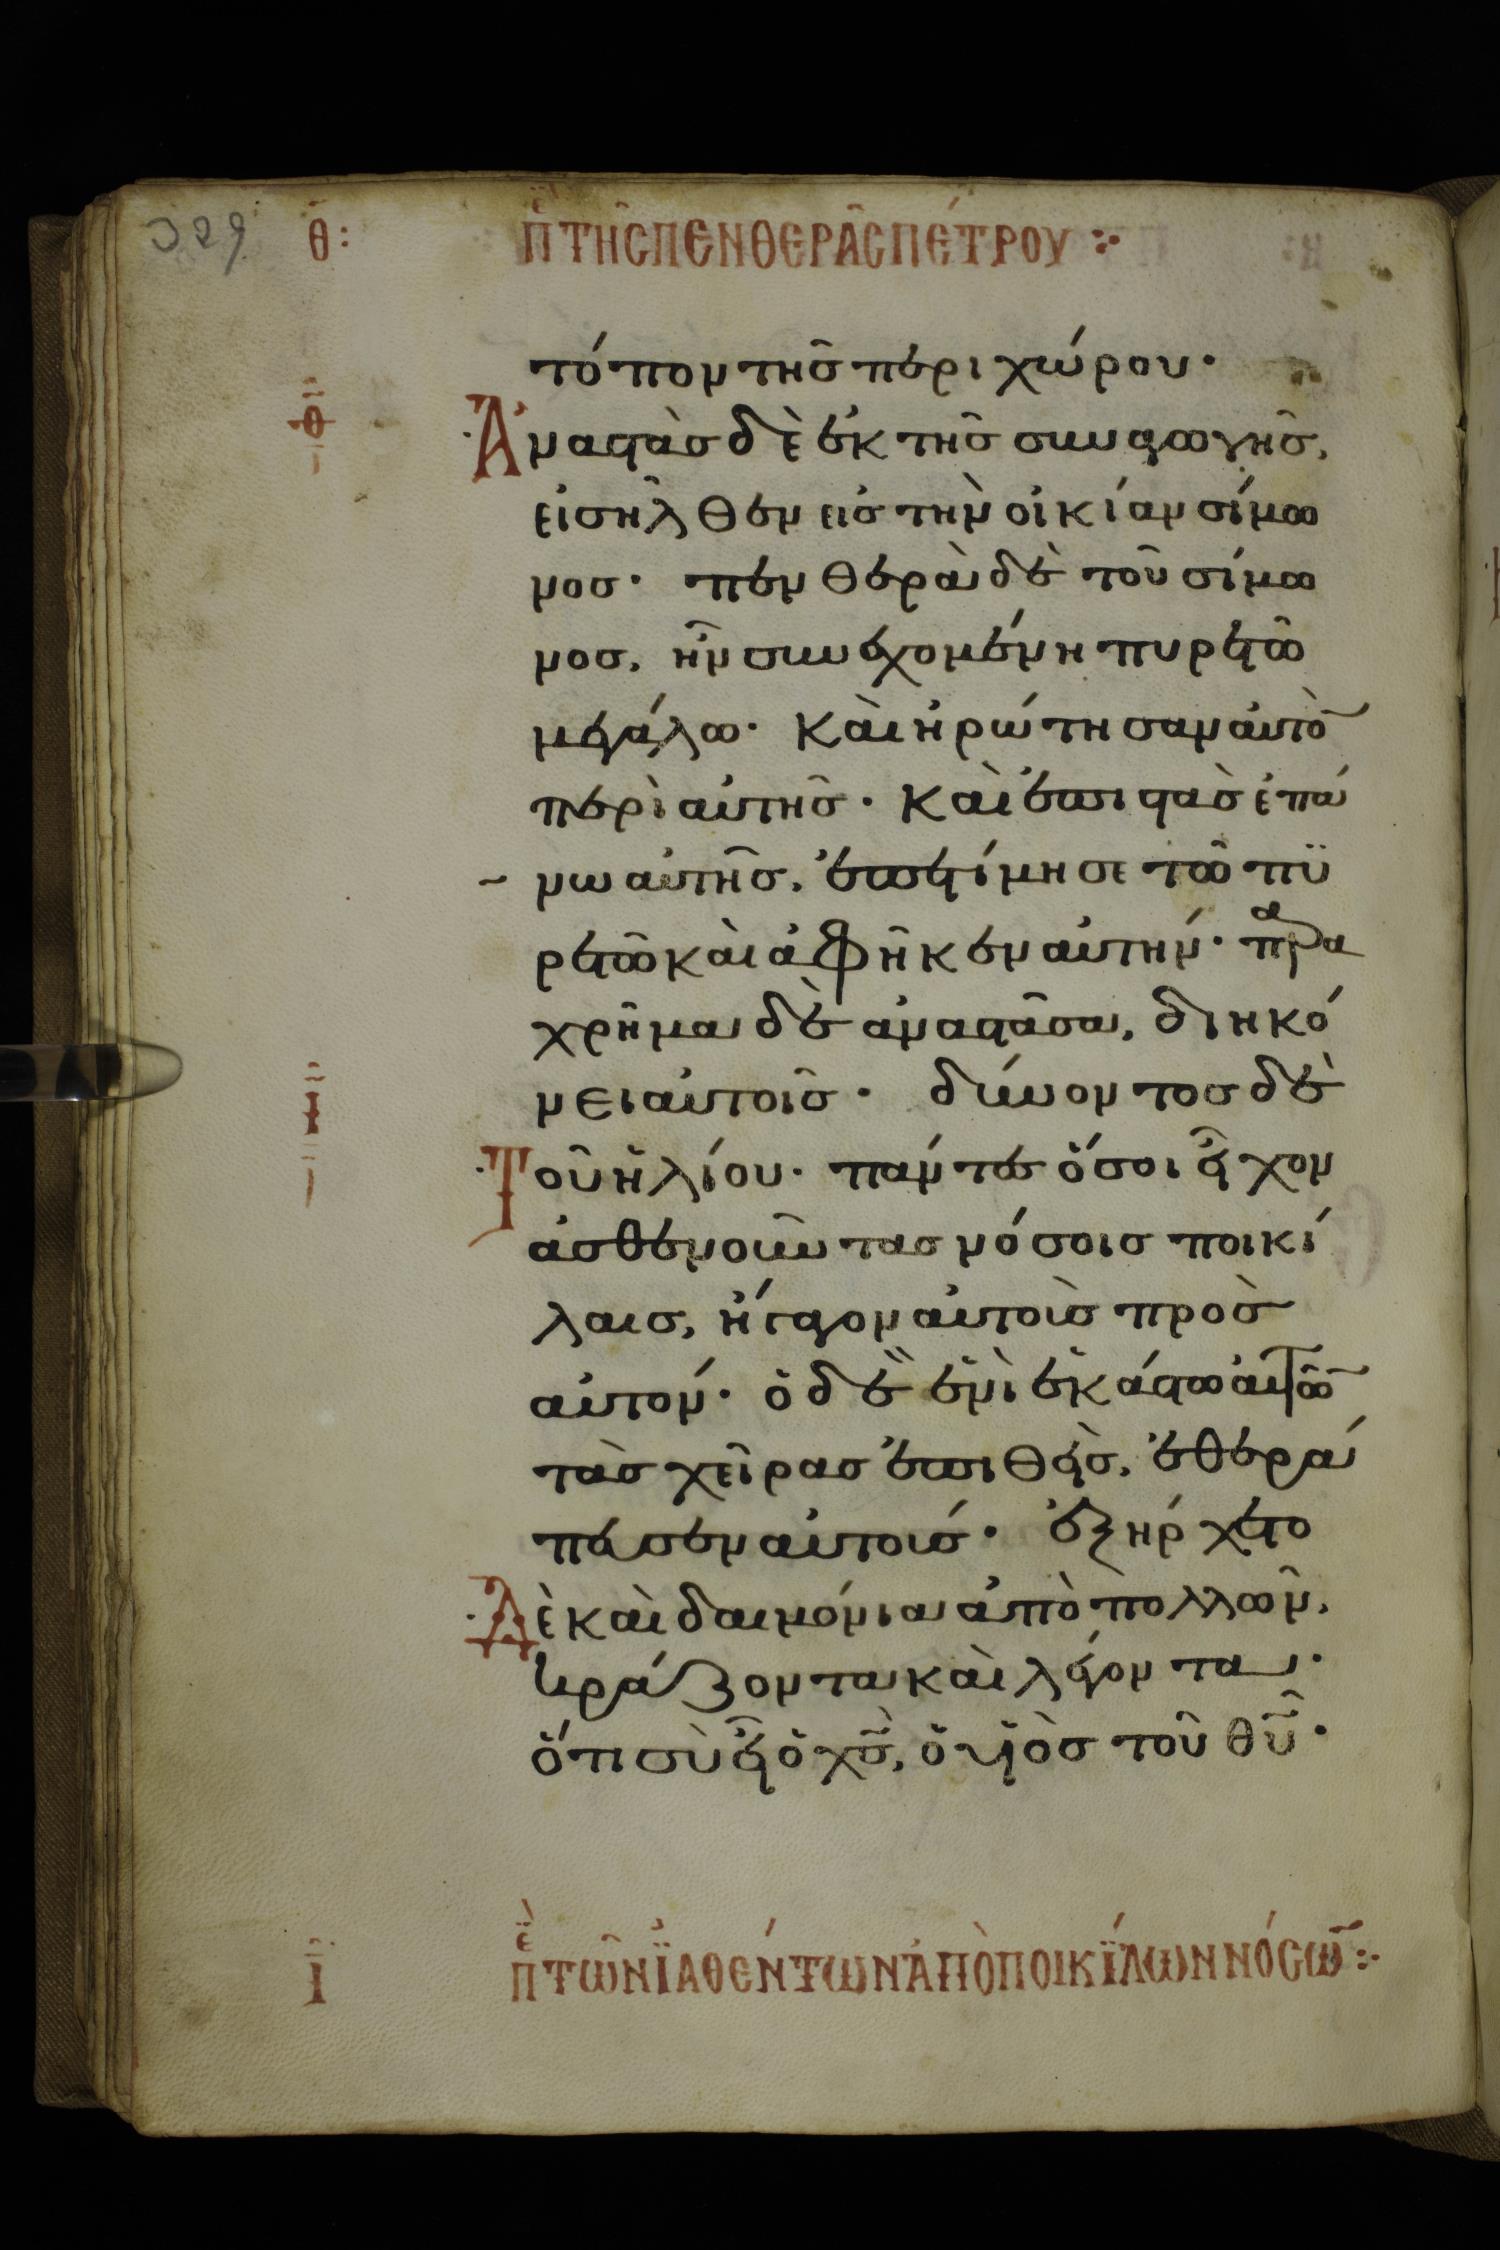 329 θ: πε τῆς πενθερᾶς πέτρου
τόπον τῆς περιχώρου·
Ἀναστὰς δὲ ἐκ τῆς συναγωγῆς,
εἰσῆλθεν εἰς τὴν οἰκίαν σίμω
νος· πενθερὰ δὲ τοῦ σίμω
νος, ἦν συνεχομένη πυρετῶ
μεγάλω· καὶ ἠρώτησαν αὐτὸ
περὶ αὐτῆς· καὶ ἐπιστὰς ἐπά
νω αὐτῆς, ἐπετίμησε τῶ πϋ
ρετῶ καὶ ἀφῆκεν αὐτήν· παρα
χρῆμα δὲ ἀναστᾶσα, διηκό
νει αὐτοῖς· δύνοντος δὲ
Τοῦ ἡλίου· πάντες ὅσοι εἶχον
ἀσθενοῦντας νόσοις ποικί
λαις, ἤγαγον αὐτοὺς πρὸς
αὐτόν· ὁ δὲ ἑνὶ ἑκάστω αὐτῶ
τὰς χεῖρας ἐπιθεὶς, ἐθερά
πευσεν αὐτούς· ἐξήρχετο
Δὲ καὶ δαιμόνια ἀπὸ πολλῶν,
κράζοντα καὶ λέγοντα·
ὅτι σὺ εἶ ὁ χς, ὁ υἱὸς τοῦ θυ·
ι πε τῶν ϊαθέντων ἀπὸ ποικίλων νόσω